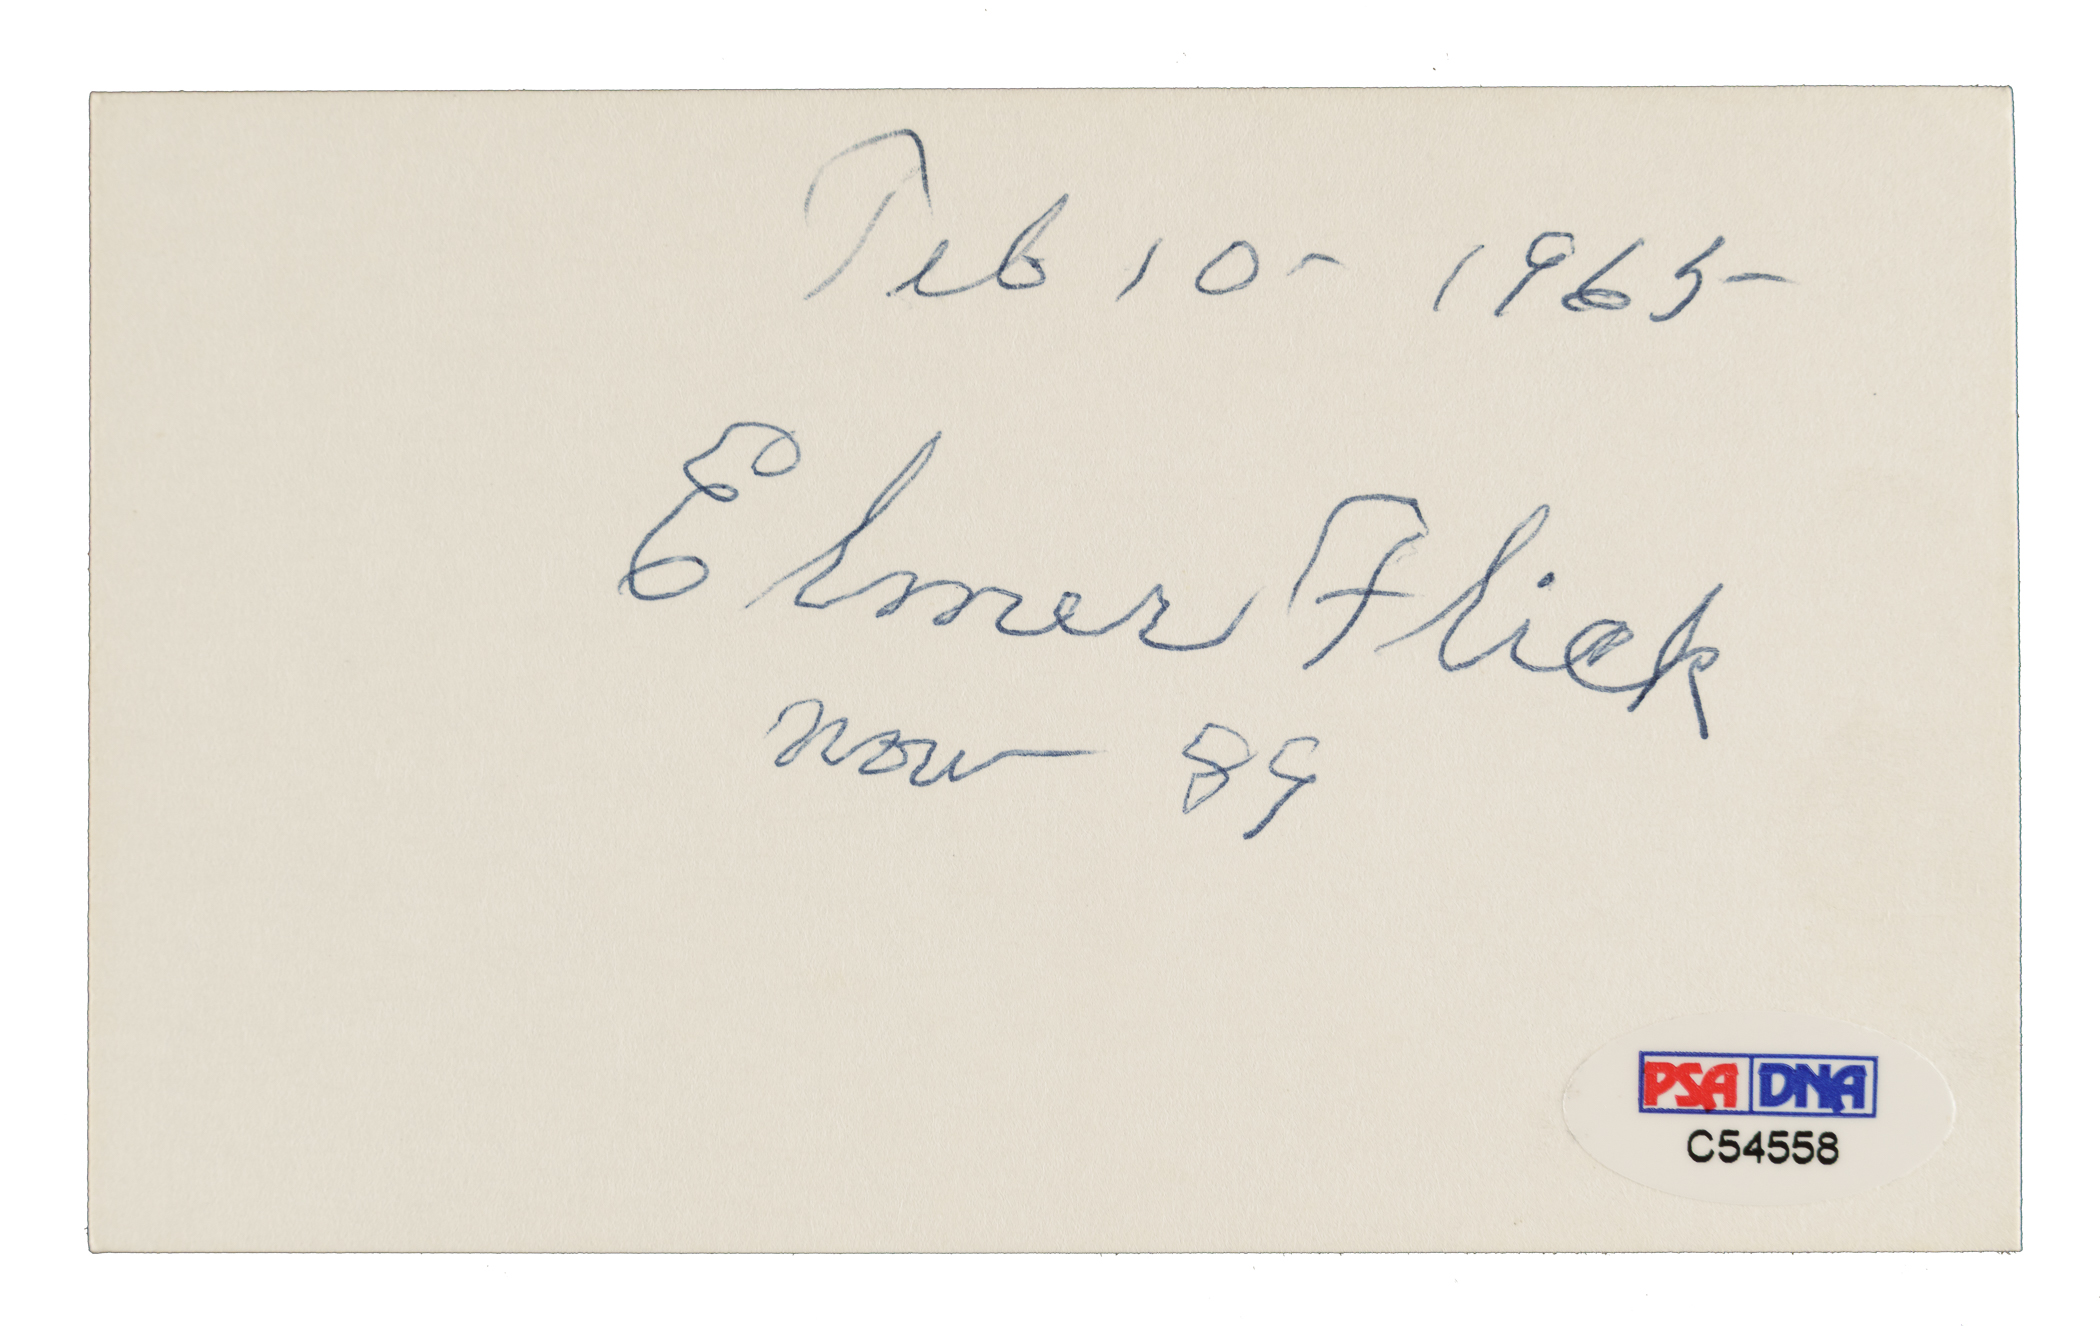 Feb 10 - 1965
Elmer Flick
now 89
PSA DNA
C54558